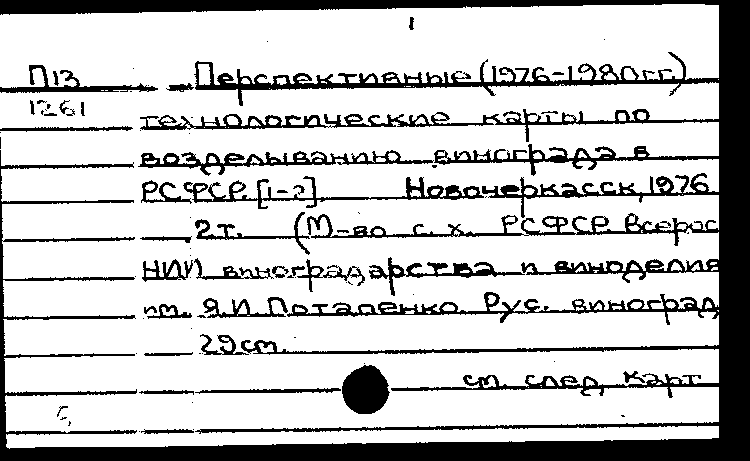 1
П13 Перспективные (1976-1980гг.)
1261 технологические карты по
возделыванию винограда в
РСФСР. [1-2]. Новочеркасск, 1976.
2 т. (М-во с. х. РСФСР. Всерос
НИИ виноградарства и виноделия
им. Я.И. Потапенко. Рус. виноград
29 см.
см. след. карт
5